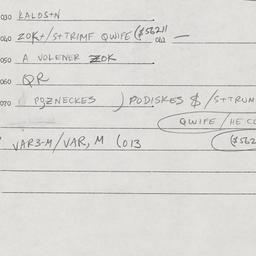 030 KALOS+N
040 ZOK+/S+TRIMF QWIFE ($56211 042 —
050 A VOLENER ZOK
060 QR
070 POZNECKES ) PODISKES $ /S+TRUM
QWIFE/HE CO
VAR3-M/VAR, M (013 ($562